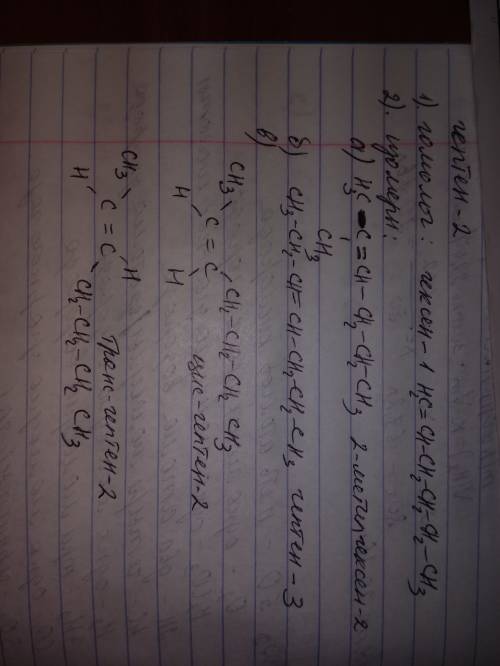 гептен-2
1) гомолог: гексен-1 H₂C=CH-CH₂-CH₂-CH₂-CH₃
2). изомеры:
а) H₃C-C=CH-CH₂-CH₂-CH₃ 2-метилгексен-2
CH₃
б) CH₃-CH₂-CH=CH-CH₂-CH₂-CH₃ гептен-3
в)
CH₃ CH₂-CH₂-CH₂ CH₃
C=C цис-гептен-2
H H
CH₃ H
C=C Транс-гептен-2
H CH₂-CH₂-CH₂ CH₃